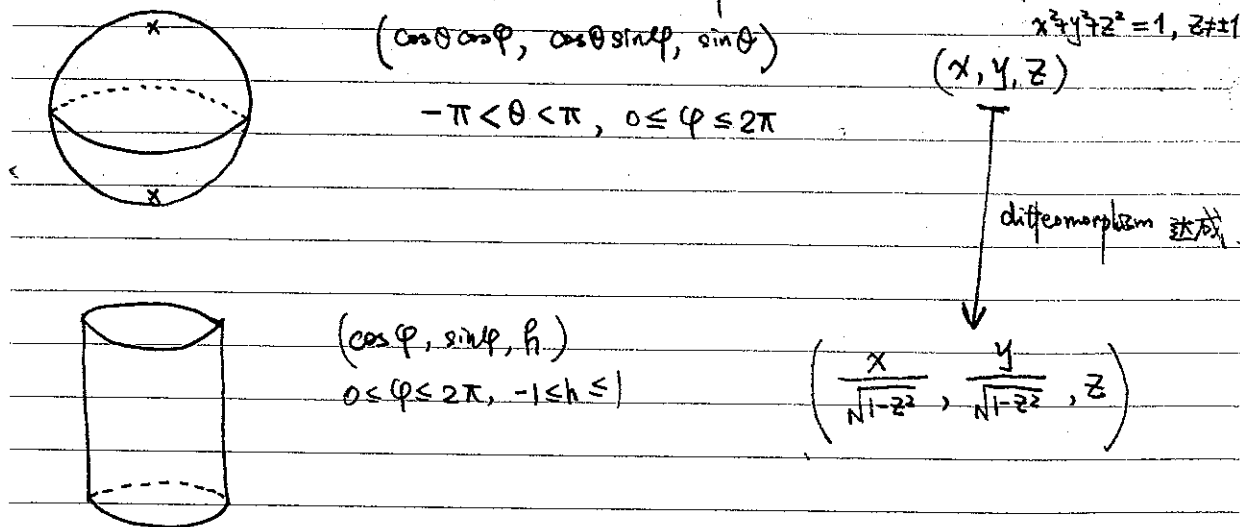 (cosθ cosφ, cosθ sinφ, sinθ)
-π < θ < π, 0 ≤ φ ≤ 2π
x²+y²+z² = 1, z≠±1
(x, y, z)
diffeomorphism 达成
(cosφ, sinφ, h)
0 ≤ φ ≤ 2π, -1 ≤ h ≤ 1
(x/√(1-z²), y/√(1-z²), z)